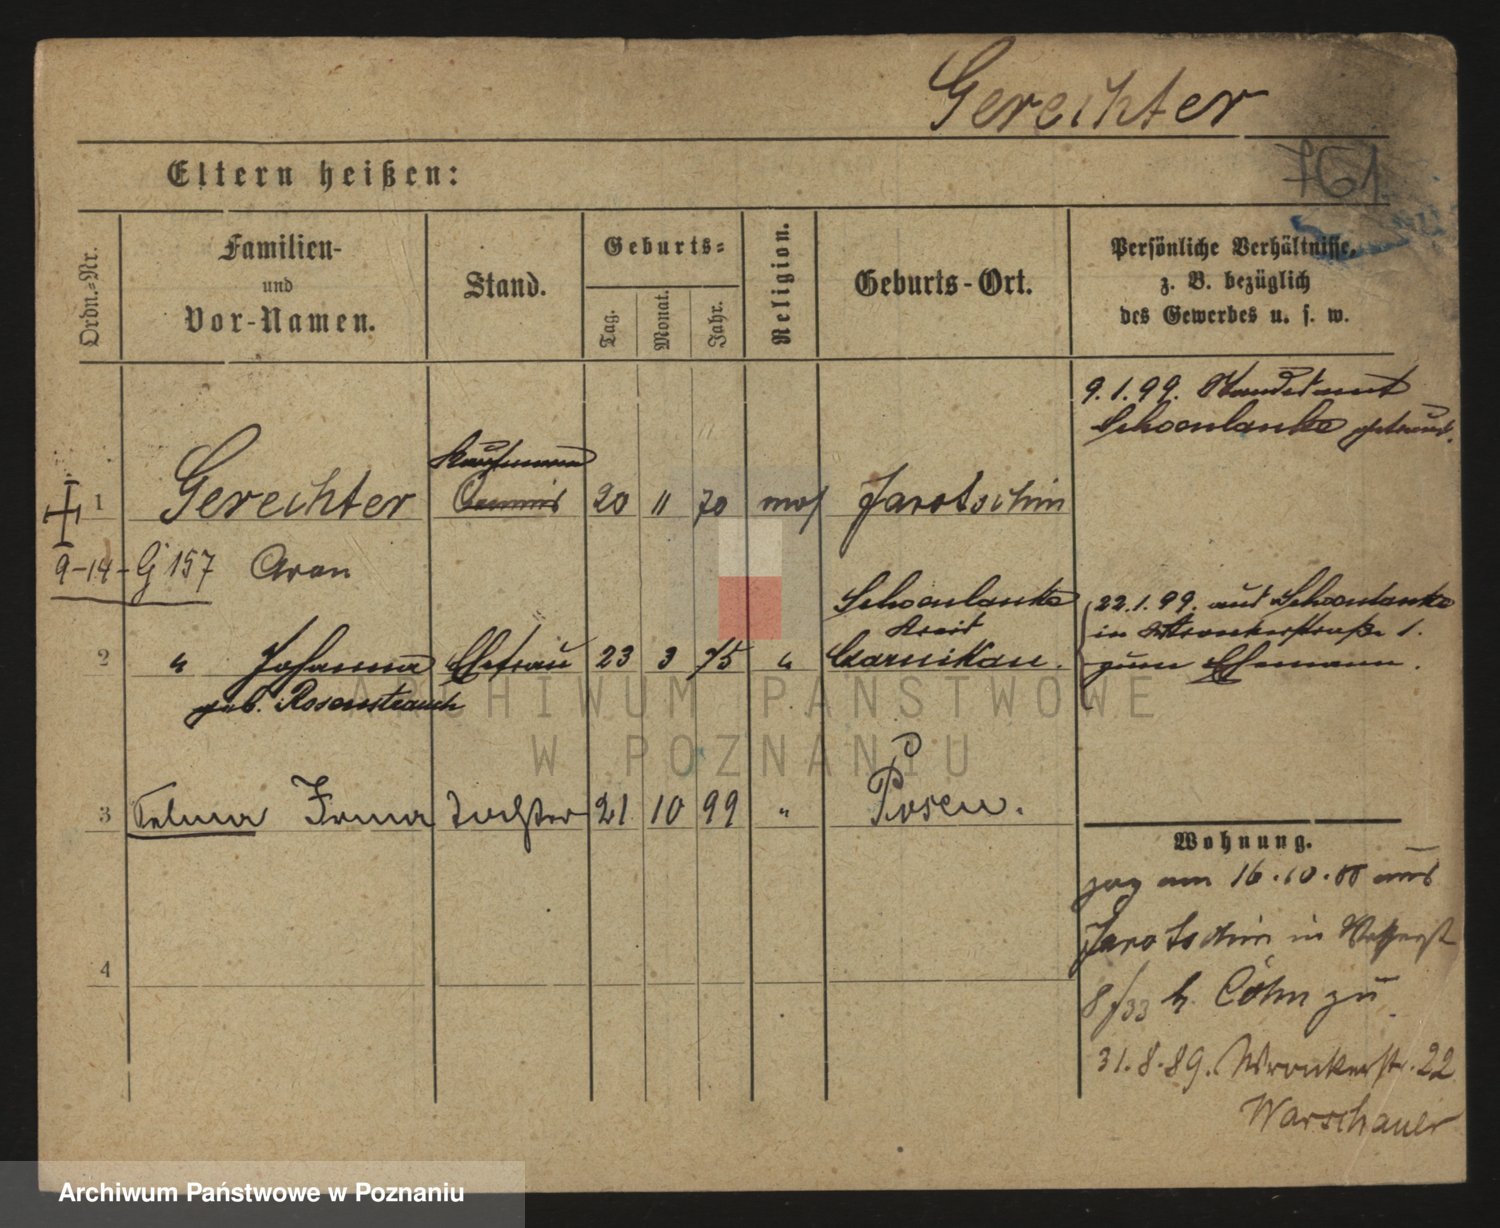 Gerechter
761
Eltern heißen:
Ordn.-Nr.
Familien-
und
Vor-Namen.
Stand.
Geburts-
Tag.
Monat.
Jahr.
Religion.
Geburts-Ort.
Persönliche Verhältnisse,
z. B. bezüglich
des Gewerbes u. s. w.
9.1.99. Standesamt
Schoenlanke getraut.
Kaufmann
1 Gerechter Commis 20 11 70 mos Jarotschin
9-14-G 157 Aron
Schoenlanke
Kreis
2 " Johanna Ehefrau 23 3 75 " Czarnikau.
geb. Rosenstrauch
22.1.99. aus Schoenlanke
in Wronkerstraße 1.
zum Ehemann.
3 Selma Irma Tochter 21 10 99 " Posen.
4
Wohnung.
zog am 16.10.88 aus
Jarotschin in
8/33 b. Cohn zu
31.8.89. Wronkerstr. 22
Warschauer
ARCHIWUM PAŃSTWOWE
W POZNANIU
Archiwum Państwowe w Poznaniu